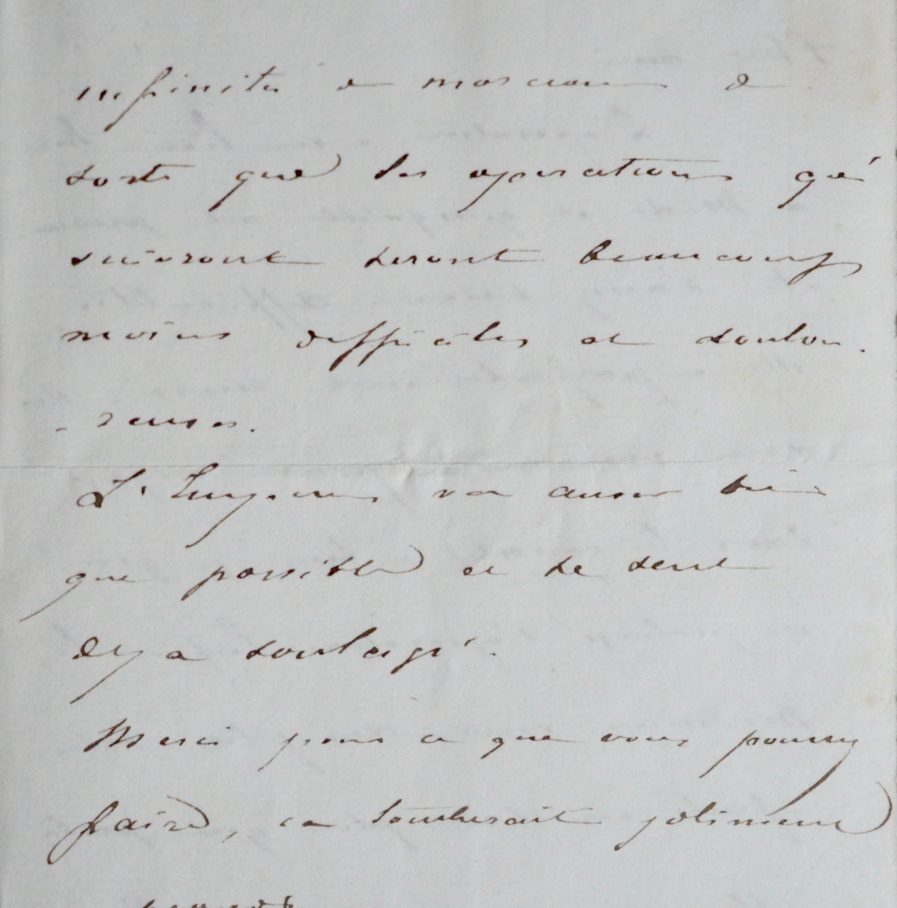 infinité de morceaux de
sorte que les opérations qui
suivront seront beaucoup
moins difficiles et doulou-
-reuses.
va aussi bien
que possible et se sent
déja soulagé.
Merci pour ce que vous pourrez
faire, ca tomberait joliment